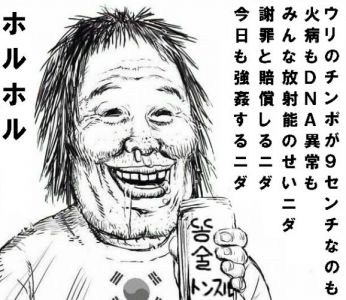 ウリのチンポが9センチなのも
火病もDNA異常も
みんな放射能のせいニダ
謝罪と賠償しるニダ
今日も強姦するニダ
ホルホル
똥술
トンスル